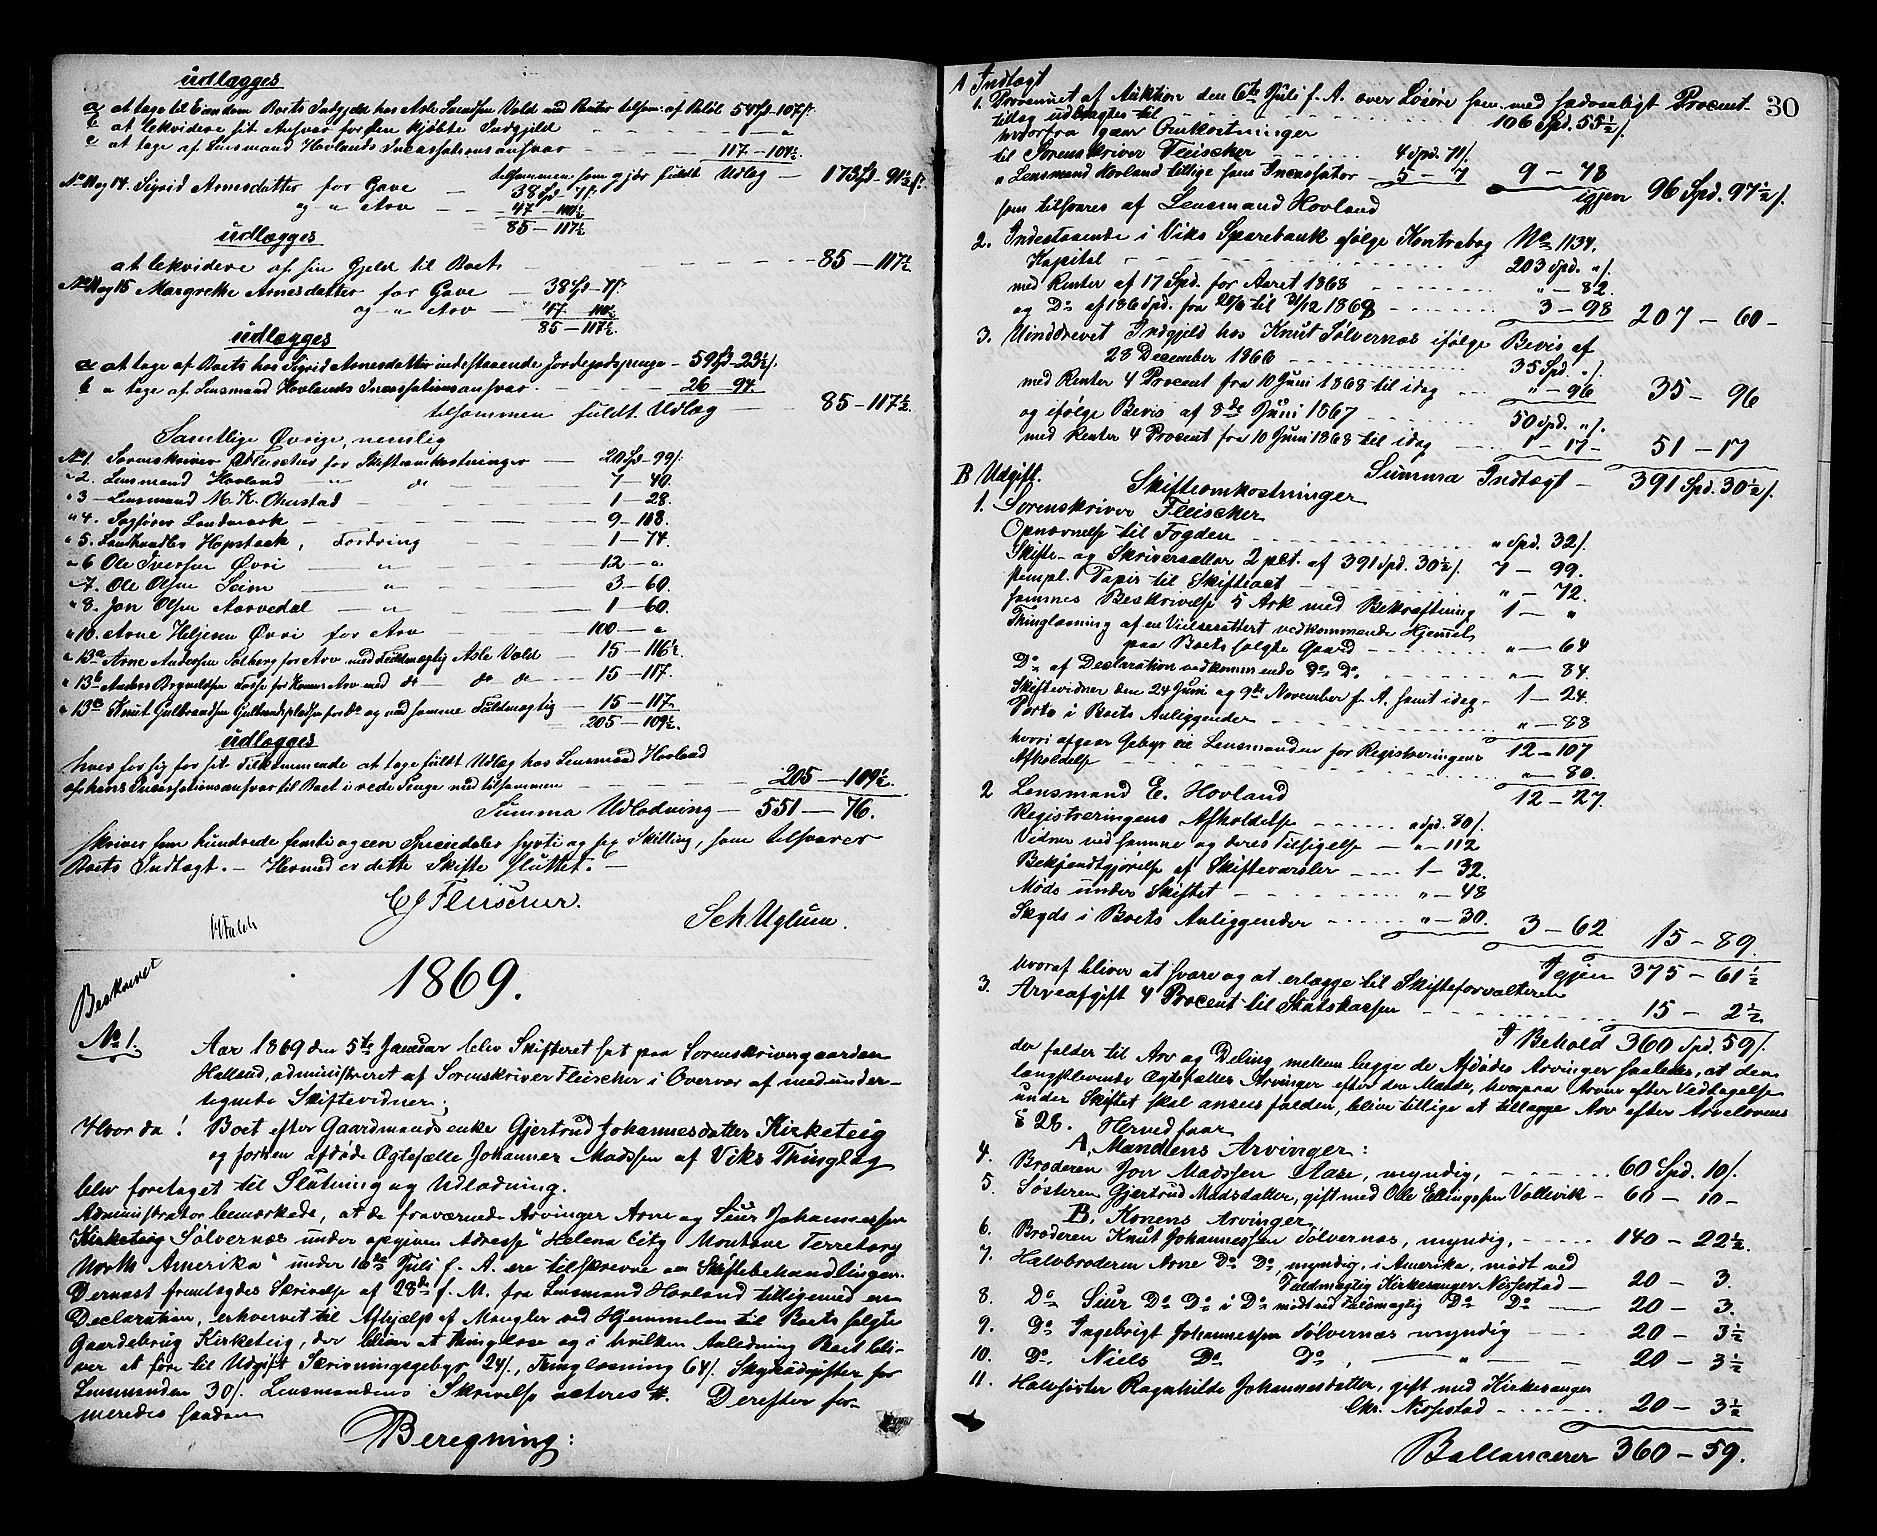 udlægges
a at tage til Eiendom Boets Indgjeld hos Asle Svendsen Vold med Renter tilsam. af Beløb 54 Spd - 107 s.
b at lekvidere sit Ansvar for den kjøbte Indgjeld - "
c at tage af Lensmand Hovlands Incassationsansvar - 117 - 104½
tilsammen som gjør fuldt Udlæg - 173 Sp - 91½ s.
No 11 og 14. Sigrid Arnesdatter for Gave - 38 Spd 7 s.
og " Arv - 47 - 110½
85 - 117½
udlægges
at lekvidere af sin Gjeld til Boet - 85 - 117½
No 11 og 15 Margrethe Arnesdatter for Gave - 38 Spd - 7 s.
og " Arv - 47 - 110½
85 - 117½
udlægges
a at tage af Boets hos Sigrid Arnesdatter indestaaende Jordegodspenge - 59 Spd - 23½ s.
b " tage af Lensmand Hovlands Incassationsansvar - 26 - 94.
tilsammen fuldt Udlæg - 85 - 117½
Samtlige Øvrige, nemlig
No 1. Sorenskriver Fleischer for Skifteomkostninger - 20 Spd - 99 s.
" 2. Lensmand Hovland " do - 7 - 40.
" 3 - Lensmand M. K. Ohnstad - 1 - 28.
" 4. Sagfører Landmark - 9 - 108.
" 5. Landhandler Hopstock, Fordring - 1 - 74.
" 6 Ole Iversen Øvri - " - 12 - "
" 7. Ole Olsen Seim - " - 3 - 60.
" 8. Jon Olsen Aarvedal - " - 1 - 60.
" 10. Arne Heljesen Øvri for Arv - 100 - "
" 13a Arne Andersen Solberg for Arv med Fuldmægtig Asle Vold - 15 - 116½.
" 13b Anders Brynildsen Fosse for Konens Arv med do - do do - 15 - 117.
" 13c Knut Gulbrandsen Gulbrandspladsen for do og ved samme Fuldmægtig - 15 - 117
205 - 109½
udlægges
hver for sig for sit Tilkommende at tage fuldt Udlæg hos Lensmand Hovland
af hans Incassationsansvar til Boet i rede Penge med tilsammen - 205 - 109½
Summa Udlodning - 551 - 76.
skriver fem hundrede femti og een Speciedaler sytti og sex Skilling, som tilsvarer
Boets Indtægt. - Hermed er dette Skifte sluttet. -
C J Fleischer.
Sch. Uglum.
1869.
Beskrevet
No 1.
Aar 1869 den 5te Januar blev Skifteret sat paa Sorenskrivergaarden
Halland, administreret af Sorenskriver Fleischer i Overvær af medunder-
tegnede Skiftevidner;
Hvor da! Boet efter Gaardmandsenke Gjertrud Johannesdatter Kirketeig
og forhen afdøde Ægtefælle Johannes Madssen af Viks Thinglag
blev foretaget til Slutning og Udlodning.
Administrator bemærkede, at de fraværende Arvinger Arne og Siur Johannessen
Kirketeig Sølvernæs under opgiven Adresse "Helena City Montane Terretory
North Amerika" under 16de Juli f. A. ere tilskrevne om Skiftebehandlingen.
Dernæst fremlagdes Skrivelse af 28de f. M. fra Lensmand Hovland tilligemed en
Declaration, erhvervet til Afhjælp af Mangler ved Hjemmelen til Boets solgte
Gaardebrug Kirketeig, der bliver at thinglæse og i hvilken Anledning Boet bli-
ver at føre til Udgift Skrivningsgebyr 24 s., Tinglæsning 64 s. Skydsudgifter for
Lensmanden 30 s. Lensmandens Skrivelse vateres #. Derefter for-
meredes saadan
Beregning:
30
A Indtægt
1. Provenuet af Auktion den 6te Juli f. A. over Løsøre sam. med sædvanligt Procent-
tillæg udbragtes til - 106 Spd. 55½ s.
hvorfra gaar Omkostninger
til Sorenskriver Fleischer - 4 Spd. 71 s.
" Lensmand Hovland tillige som Incassator - 5 - 7 9 - 78
igjen 96 Spd. 97½ s.
som tilsvares af Lensmand Hovland
2. Indestaaende i Viks Sparebank ifølge Kontrabog No 1134.
Kapital - 203 Spd. " s.
med Renter af 17 Spd. for Aaret 1868 - " - 82.
og Do af 186 Spd. fra 20/6 til 31/12 1868 - 3 - 98 207 - 60 -
3. Uinddrevet Indgjeld hos Knut Sølvernæs ifølge Bevis af
28 December 1866 - 35 Spd. " s.
med Renter 4 Procent fra 10 Juni 1868 til idag - " - 96 35 - 96
og ifølge Bevis af 8de Juni 1867 - 50 Spd. " s.
med Renter 4 Procent fra 10 Juni 1868 til idag - 1 - 17 - 51 - 17
Summa Indtægt - 391 Spd. 30½ s.
B Udgift.
Skifteomkostninger
1. Sorenskriver Fleischer
Opnævnelse til Fogden - " Spd. 32 s.
Skifte- og Skriversalær 2 pCt. af 391 Spd. 30½ s. 7 - 99.
stempl. Papir til Skifteact - " - 72.
sammes Beskrivelse 5 Ark med Bekræftning 1 - "
Thinglæsning af en Vielsesattest vedkommende Hjemmel
paa Boets solgte Gaard - " - 64
Do af Declaration vedkommende Do Do - " - 84
Skiftevidner den 24 Juni og 9de November f. A. samt idag - 1 - 24.
Porto i Boets Anliggender - " - 88
12 - 107
hvori afgaar Gebyr til Lensmanden for Registreringens
Afholdelse - " - 80.
12 - 27.
2 Lensmand E. Hovland
Registreringens Afholdelse - " Spd. 80 s.
Vidner ved samme og deres Tilsigelse - " - 112
Bekjendtgjørelse af Skiftevarsler - 1 - 32.
Møde under Skiftet - " - 48
Skyds i Boets Anliggender - " - 30. 3 - 62 15 - 89.
Igjen 375 - 61½
hvoraf bliver at svare og at erlægge til Skifteforvalteren
3. Arveafgift 4 Procent til Statskassen - 15 - 2½
I Behold 360 Spd. 59 s.
der falder til Arv og Deling mellem begge de Afdødes Arvinger saaledes, at den
længstlevende Ægtefælles Arvinger efter den Maade, hvorpaa Arven efter Vedtagelse
under Skiftet skal ansees falden, blive tillige at tillægge Arv efter Arvelovens
§ 28. Herved faar
A, Mandens Arvinger:
4. Broderen Jon Madssen Aase, myndig, - 60 Spd. 10 s.
5. Søsteren Gjertrud Madsdatter, gift med Ole Ellingsen Vallevik - 60 - 10 -
B. Konens Arvinger
6. Broderen Knut Johannessen Sølvernæs, myndig, - 140 - 22½.
7. Halvbroderen Arne Do Do, myndig, i Amerika, mødt ved
Fuldmægtig Kirkesanger Nissestad - 20 - 3.
8. Do Siur Do Do i Do mødt ved Fuldmægtig Do Do - 20 - 3.
9. Do Ingebrigt Johannessen Sølvernæs myndig - 20 - 3½
10. Do. Niels Do Do, - " - 20 - 3½
11. Halvsøster Ragnhilde Johannesdatter, gift med Kirkesanger
Chr. Nissestad - 20 - 3½
Ballancerer 360 - 59.